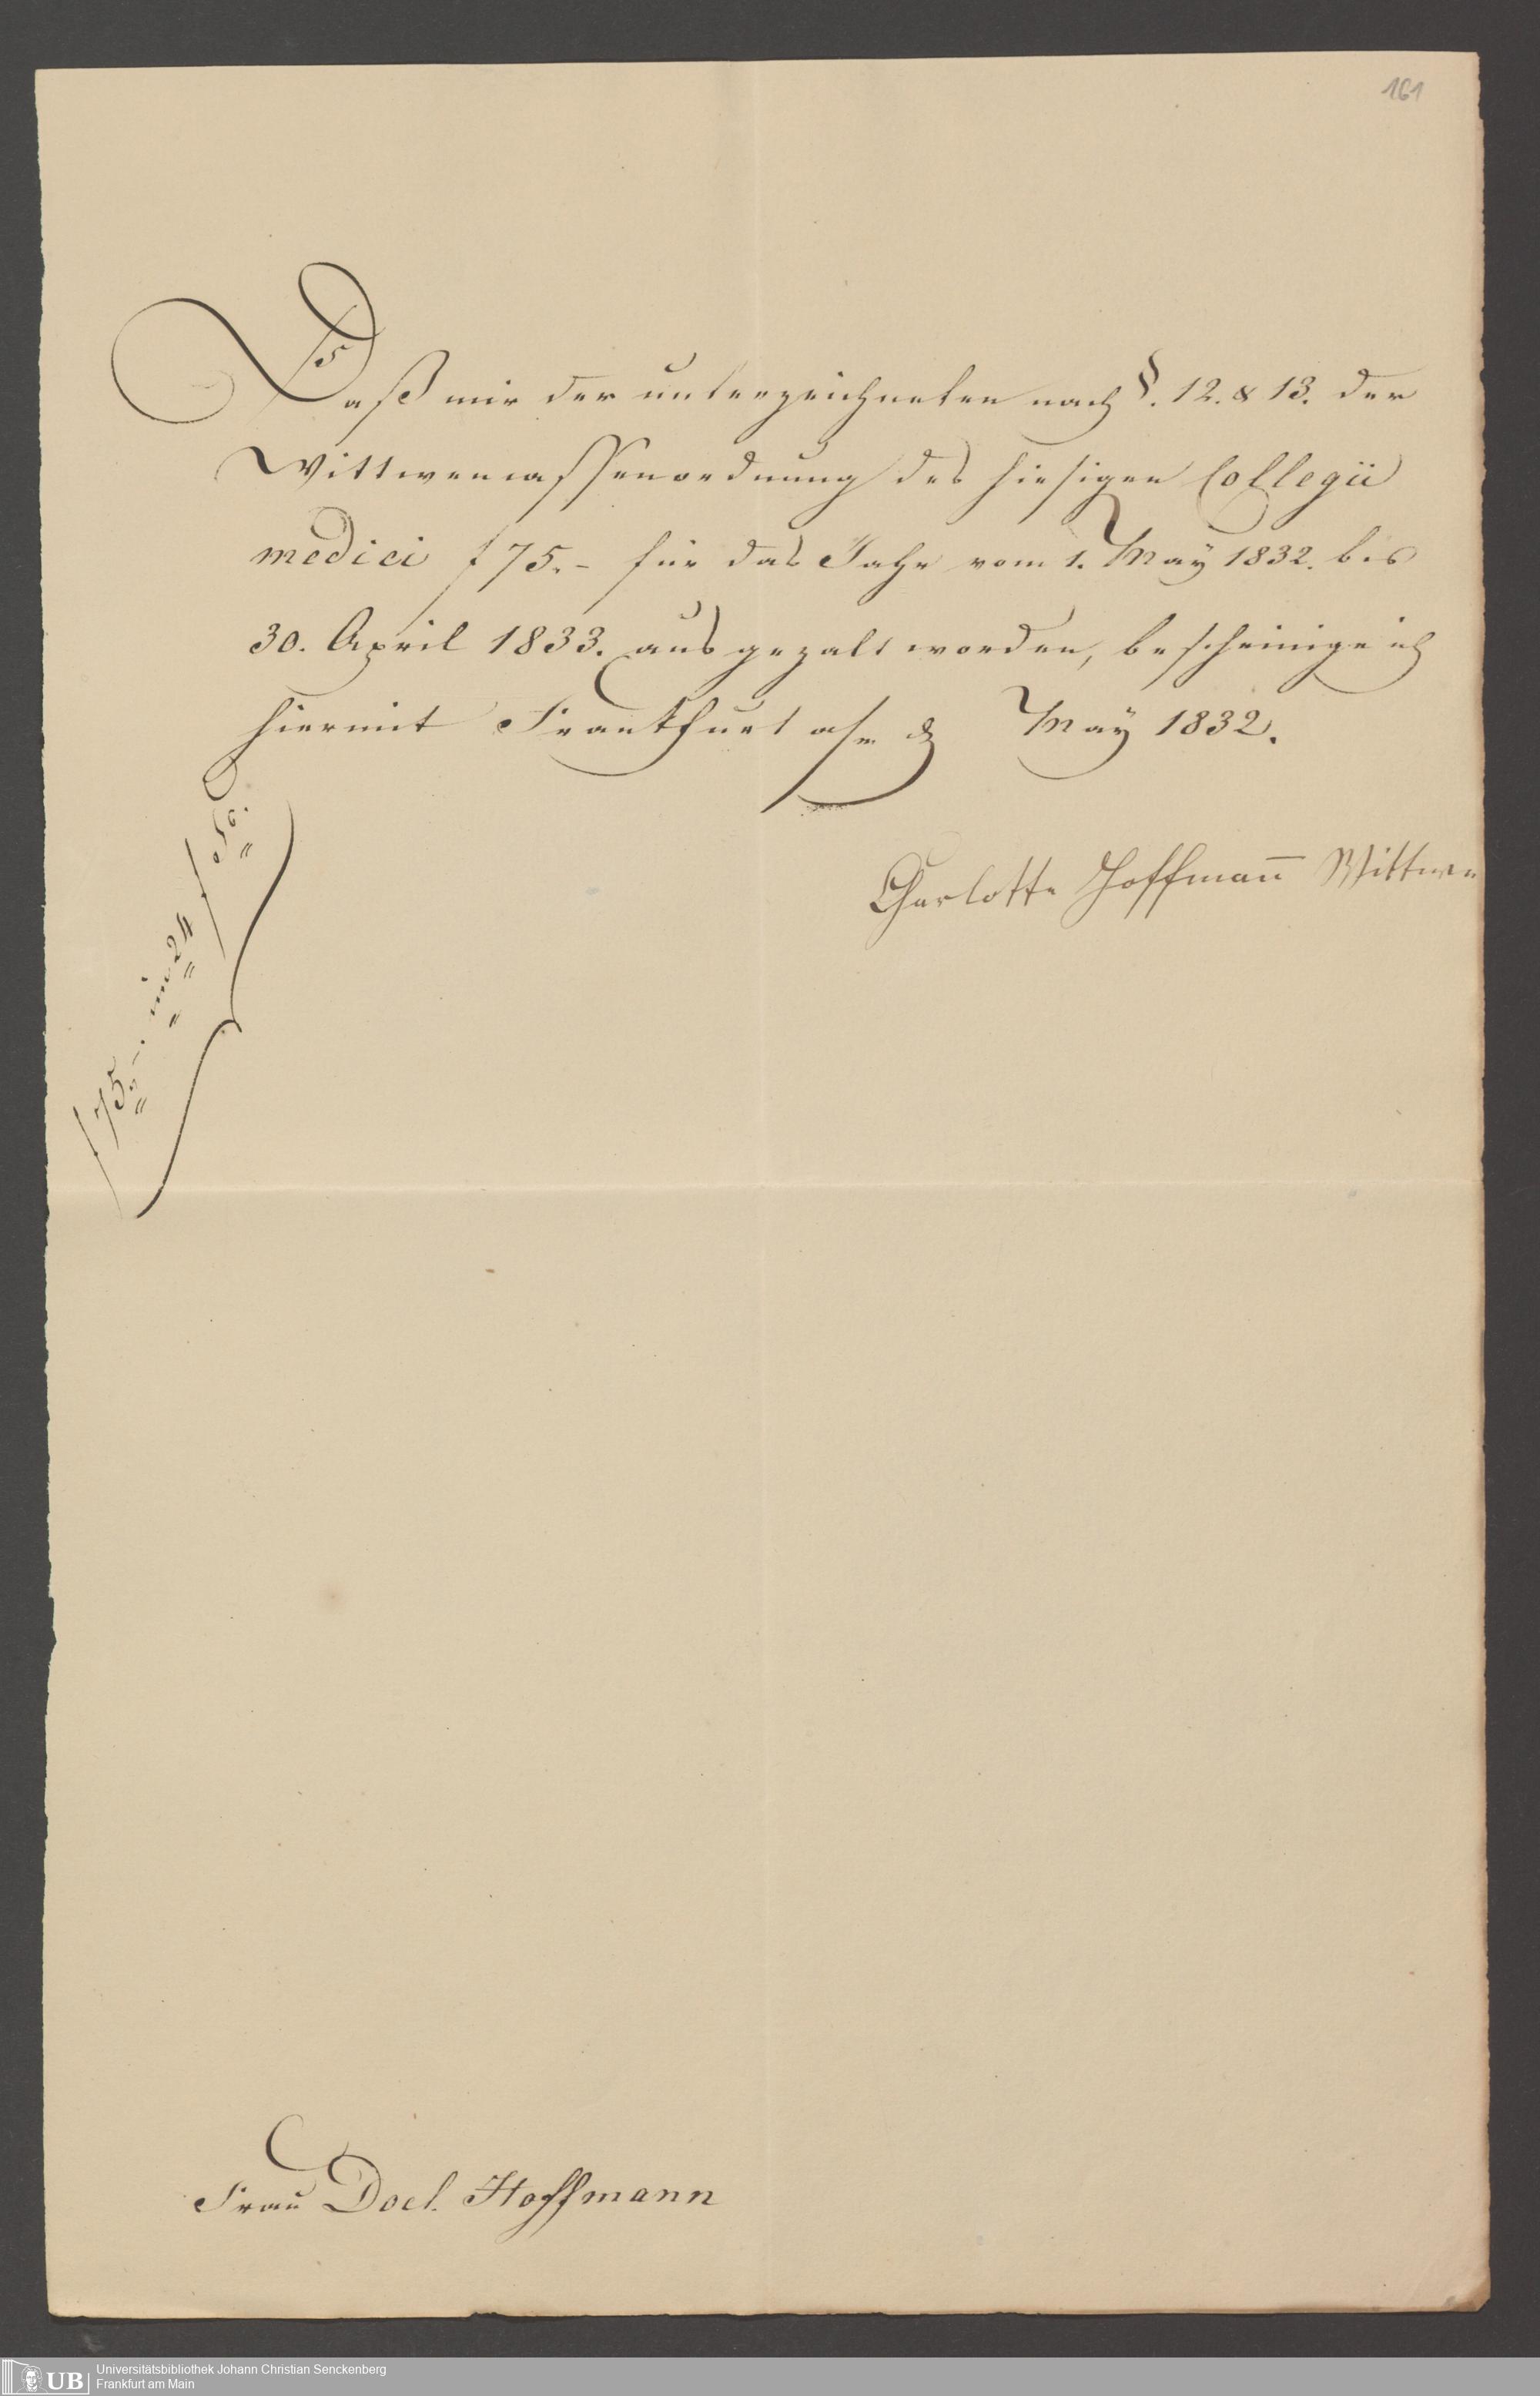 161
Daß mir der unterzeichneten nach §. 12. & 13. der
Wittwencassenordnung des hiesigen Collegii
medici f 75.- für das Jahr vom 1. May 1832. bis
30. April 1833. ausgezalt worden, bescheinige ich
hiermit Frankfurt a/m d May 1832.
Charlotte Hoffmann̅ Wittwe
f 75.-. im 24 f
Frau Doct. Hoffmann
UB Universitätsbibliothek Johann Christian Senckenberg
Frankfurt am Main